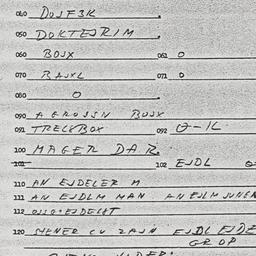 040 DOJFBK
050 DOKTEJRIM
060 BOJX 061 O
070 BAJXL 071 O
080 O
090 A GROSSN BOJX
091 TRELXBOX 092 O-IL
100 MAGER DAR
101 102 EJDL
110 AN EJDELER M
111 AN EJDLM MAN AN EJLM JUNGA
112 OJSG*EJDELKT
120 SHENER CU ZAJN EJDL EJDE
GROP